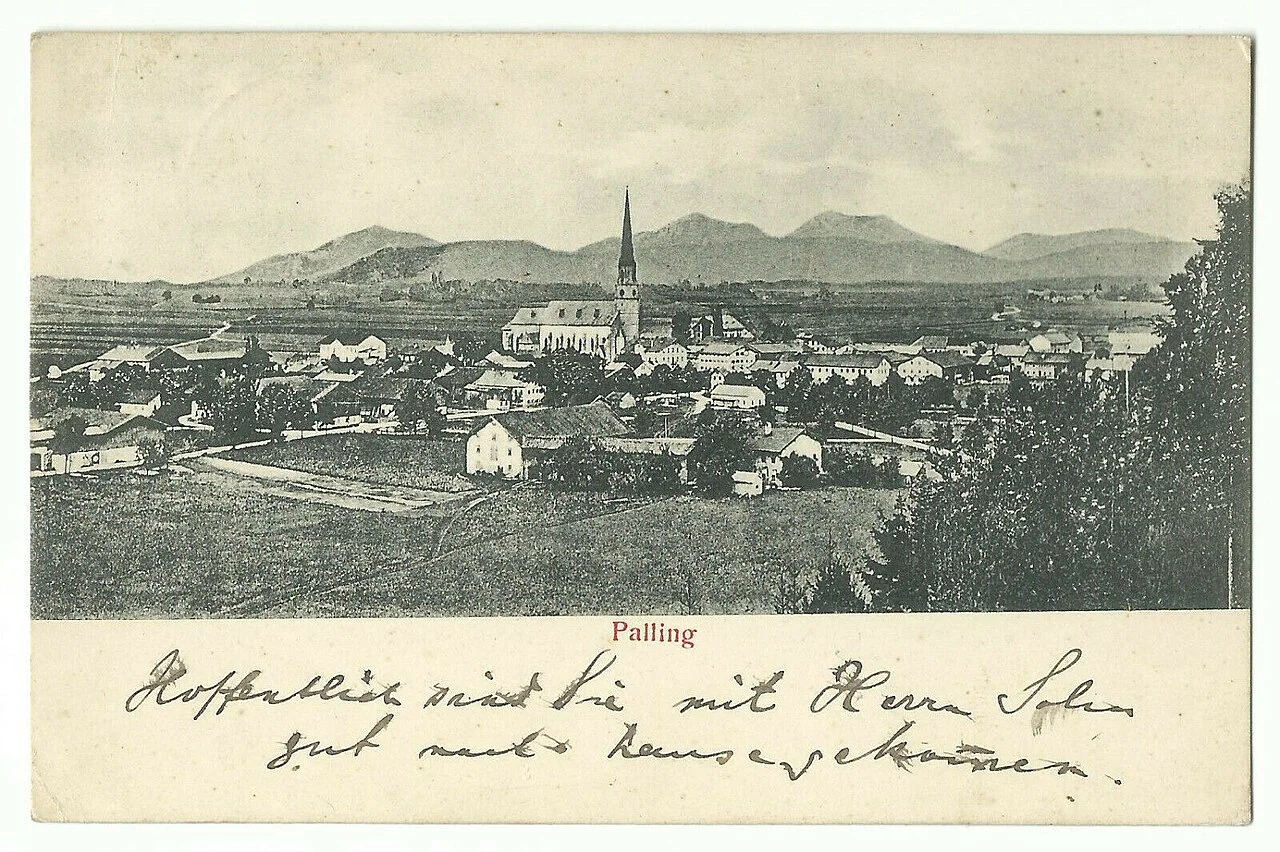 Palling
Hoffentlich sind Sie mit Herrn Sohn
gut nach Hause gekom̄en.